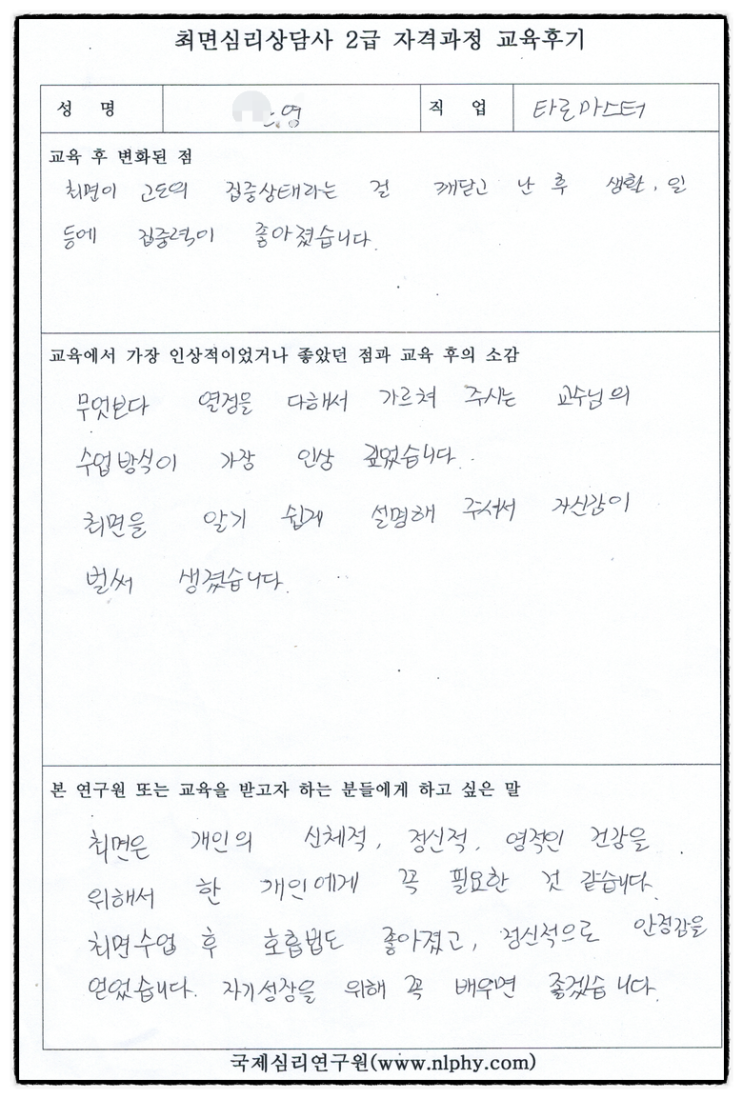 최면심리상담사 2급 자격과정 교육후기
성 명 영 직 업 타로마스터
교육 후 변화된 점
최면이 고도의 집중상태라는 걸 깨닫고 난 후 생활, 일
등에 집중력이 좋아졌습니다.
교육에서 가장 인상적이었거나 좋았던 점과 교육 후의 소감
무엇보다 열정을 다해서 가르쳐 주시는 교수님의
수업방식이 가장 인상 깊었습니다.
최면을 알기 쉽게 설명해 주셔서 자신감이
벌써 생겼습니다.
본 연구원 또는 교육을 받고자 하는 분들에게 하고 싶은 말
최면은 개인의 신체적, 정신적, 영적인 건강을
위해서 한 개인에게 꼭 필요한 것 같습니다.
최면수업 후 호흡법도 좋아졌고, 정신적으로 안정감을
얻었습니다. 자기성장을 위해 꼭 배우면 좋겠습니다.
국제심리연구원(www.nlphy.com)